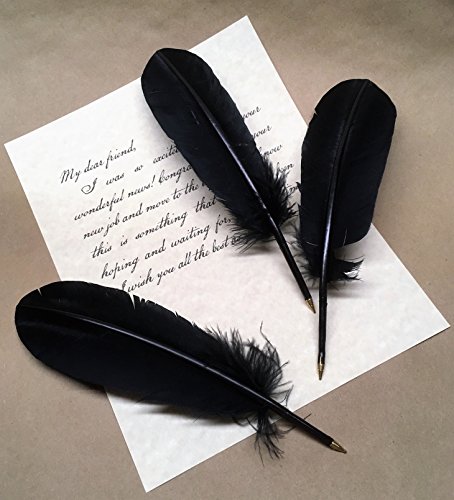 My dear friend,
I was so excited your
wonderful news! Congra your
new job and move to the now
this is something that een
hoping and waiting for
I wish you all the best